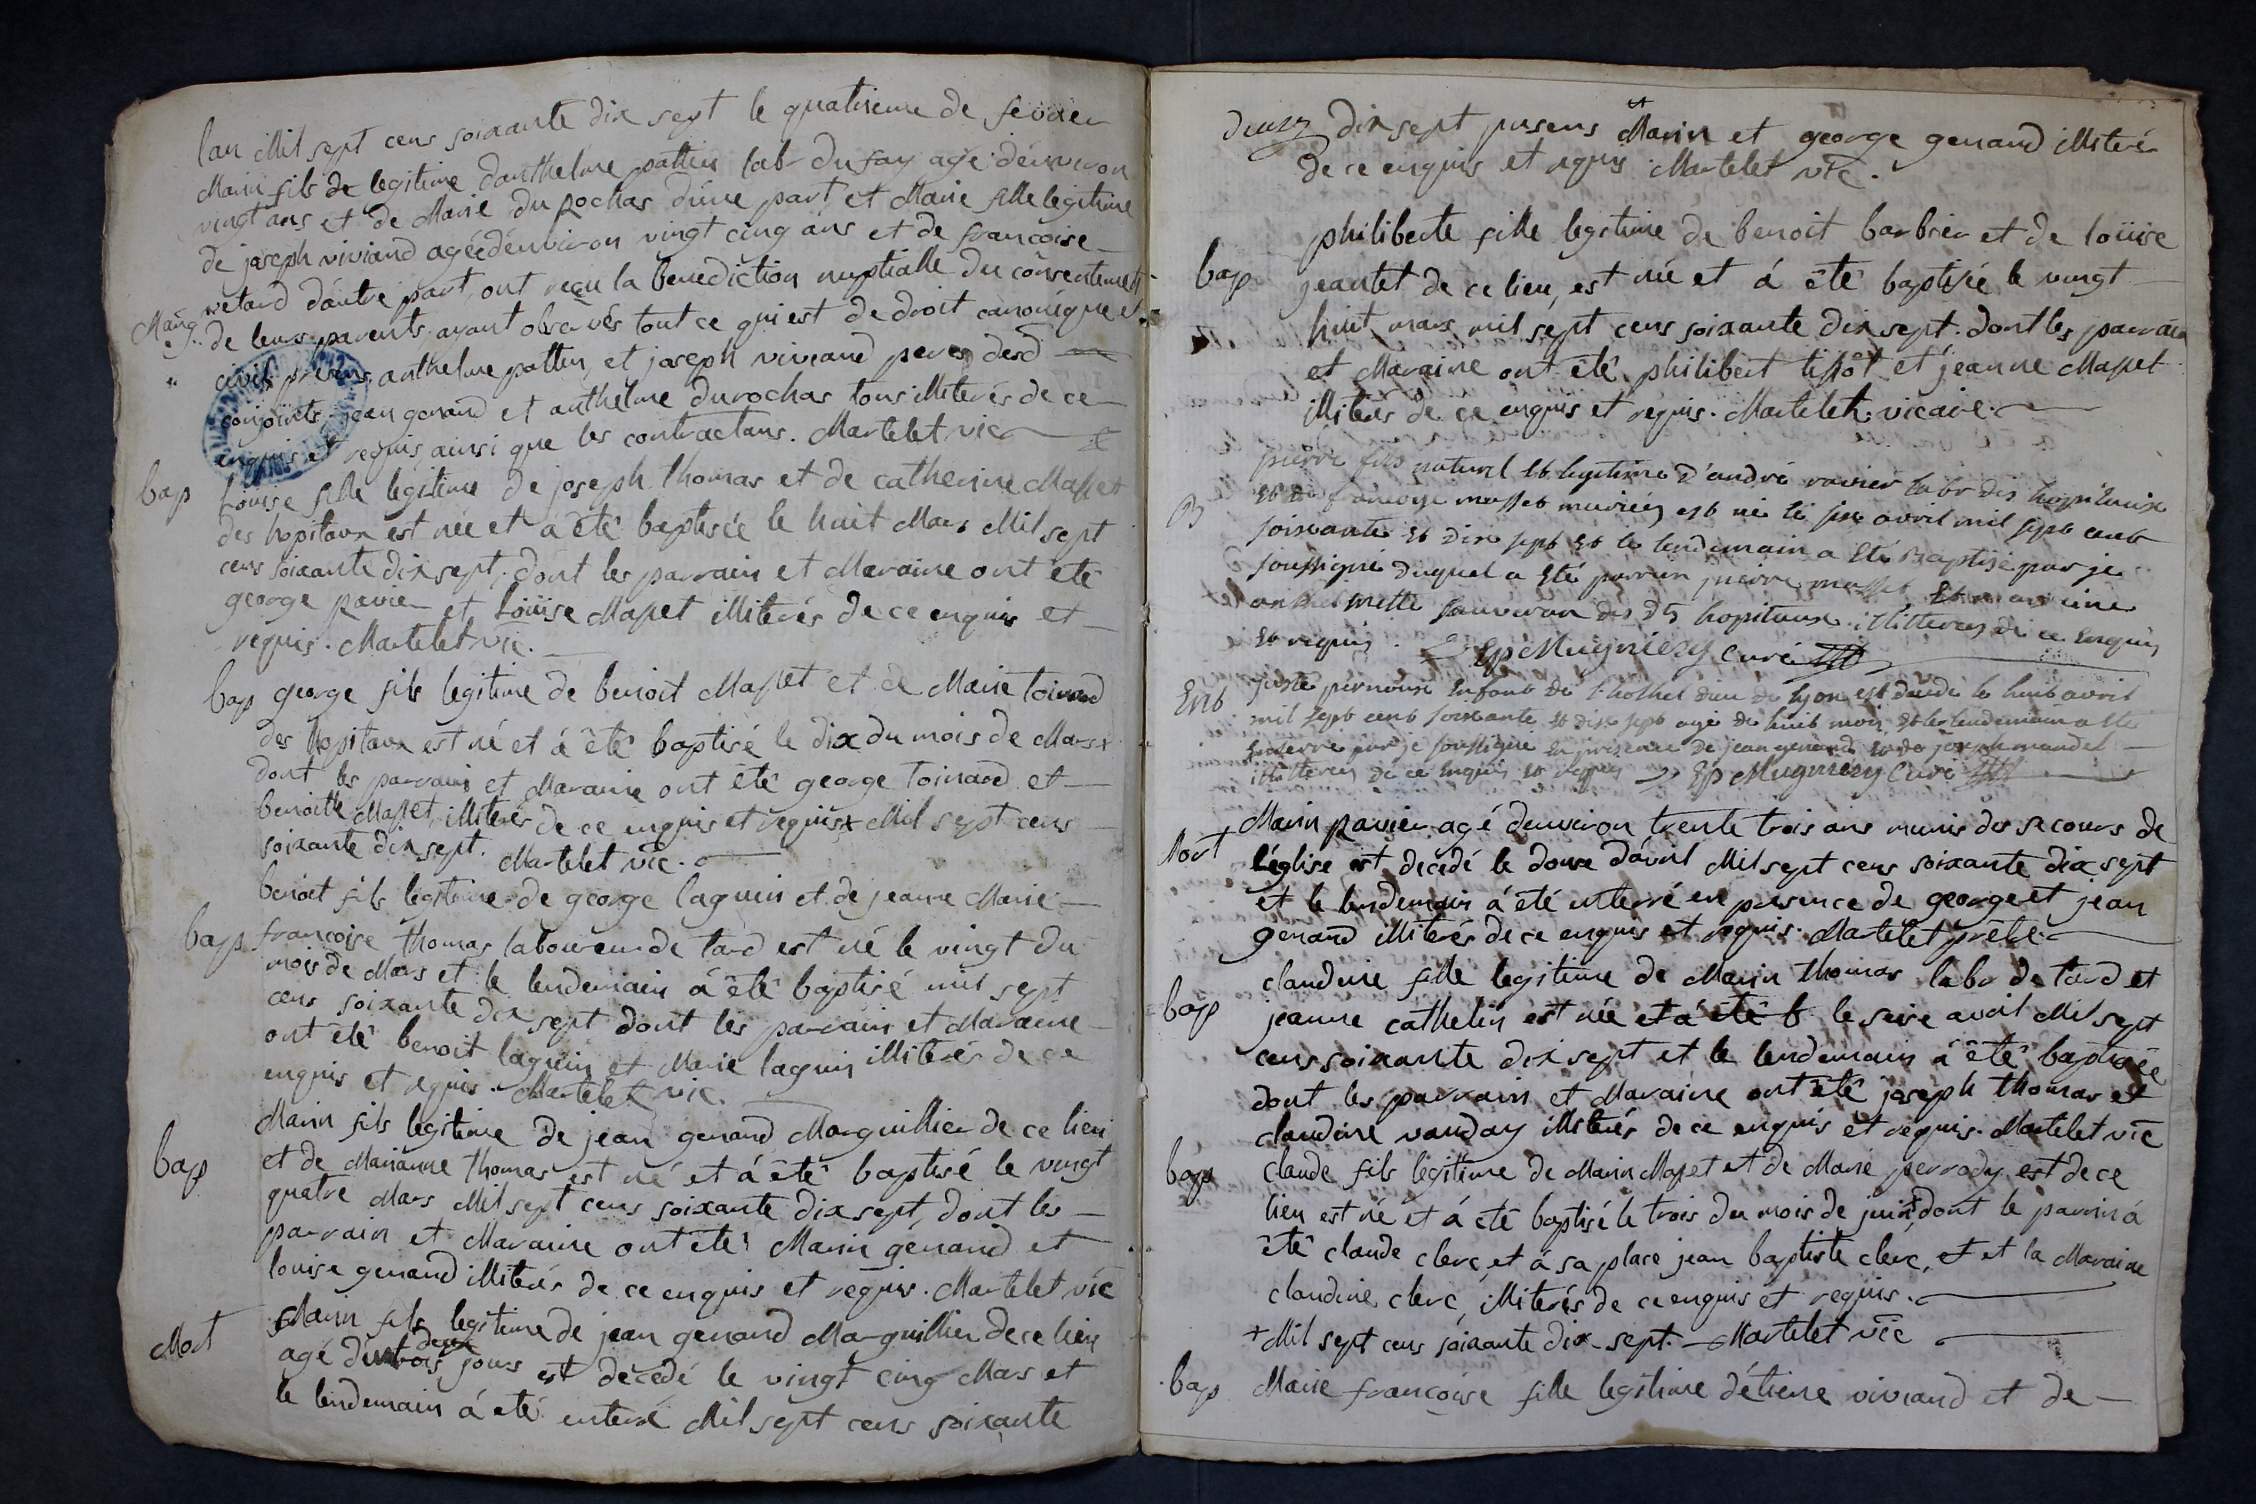 lan Mil sept cens soixante dix sept le quatrieme de fevrier
Marin fils de legitime danthelme pattin labr du fay agé d'enviwon
vingt ans et de Marie du Rochas d'une part et Marie fille legitime
de joseph viviand agée d'environ vingt cinq ans et de françoise
vetard d'autre part, ont reçu la Benediction nuptialle du consentement
Mariag. de leurs parents, ayant observés tout ce qui est de droit canonique et
civil, presens anthelme pattin, et joseph viviand peres desd
conjoints jean genand et anthelme durochas tous illiterés de ce
enquis et requis ainsi que les contractans. Martelet vic
bap Loüise fille légitime de joseph thomas et de catherine Masset
des hopitaux est née et a été baptisée le huit Mars Mil sept
cens soixante dix sept, dont les parrain et Maraine ont été
george pavier et Loüise Masset illiterés de ce enquis et
requis. Martelet vic.
bap george fils legitime de benoit Masset et de Marie toinard
des hopitaux est né et á été baptisé le dix du mois de Mars +
dont les parrain et Maraine ont été george toinard et
benoitte Masset, illiterés de ce enquis et requis + Mil sept cens
soixante dix sept. Martelet vic.
benoit fils legitime de george laguin et de jeanne Marie
bap françoise thomas laboureur de tard est né le vingt du
mois de Mars et le lendemain á été baptisé mil sept
cens soixante dix sept dont les parrain et Maraine
ont été benoit laguin et Marie laguin illiterés de ce
enquis et requis. Martelet vic.
Marin fils legitime de jean genand Marguillier de ce lieu
bap et de Marianne thomas est né et á été baptisé le vingt
quatre Mars Mil sept cens soixante dix sept, dont les
parrain et Maraine ont été Marin genand et
louise genand illiterés de ce enquis et requis. Martelet vic
Mort Marin fils legitime de jean genand Marguillier de ce lieu
deux
agé de jours est décedé le vingt cinq Mars et
le lendemain á eté enterré Mil sept cens soixante
dix sept presens Marin et george genand illiterés
de ce enquis et requis Martelet vic.
philiberte fille legitime de benoit barbier et de loüise
bap jeantet de ce lieu, est née et á été baptisée le vingt
huit mars mil sept cens soixante dix sept. dont les parrain
et Maraine ont été philibert tissot et jeanne Masset
illiterés de ce enquis et requis. Martelet. vicaire.
pierre fils naturel et legitime d'andré ravier labr des hopitaux
B et de françoise masset mariés est né le six avril mil sept cent
soixante et dix sept et le lendemain a eté Baptisé par je
soussigné duquel a eté parrain pierre masset et maraine
mette des dts hopitaux. illitterez de ce enquis
et requis. Mugniery curé
Ent juste enfant de l'hothel dieu de lyon est décédé le huit avril
mil sept cent soixante et dix sept agé de huit mois et le lendemain a eté
enterré par je soussigné en presence de jean genand et de joseph
illitterez de ce enquis et requis Mugniery Curé
Marin pavier agé denviron trente trois ans munis des secours de
Mort l'église est decedé le douze d'avril Mil sept cens soixante dix sept
et le lendemain á été enterré en presence de george et jean
genand illiterés de ce enquis et requis. Martelet prêtre.
claudine fille legitime de Marin thomas labr de tard et
bap jeanne cathelin est née et á été b le seize avril Mil sept
cens soixante dix sept et le lendemain á été baptisée
dont les parrain et Maraine ont été joseph thomas et
claudine vanday illiterés de ce enquis et requis. Martelet vic
bap claude fils légitime de Marin Masset et de Marie perrody est de ce
lieu est né et á été baptisé le trois du mois de juin + dont le parrin á
été claude clerc, et á sa place jean baptiste clerc, et et la Maraine
claudine clerc, illiterés de ce enquis et requis.
+ Mil sept cens soixante dix-sept. Martelet vic
bap Marie françoise fille legitime détiene viviand et de